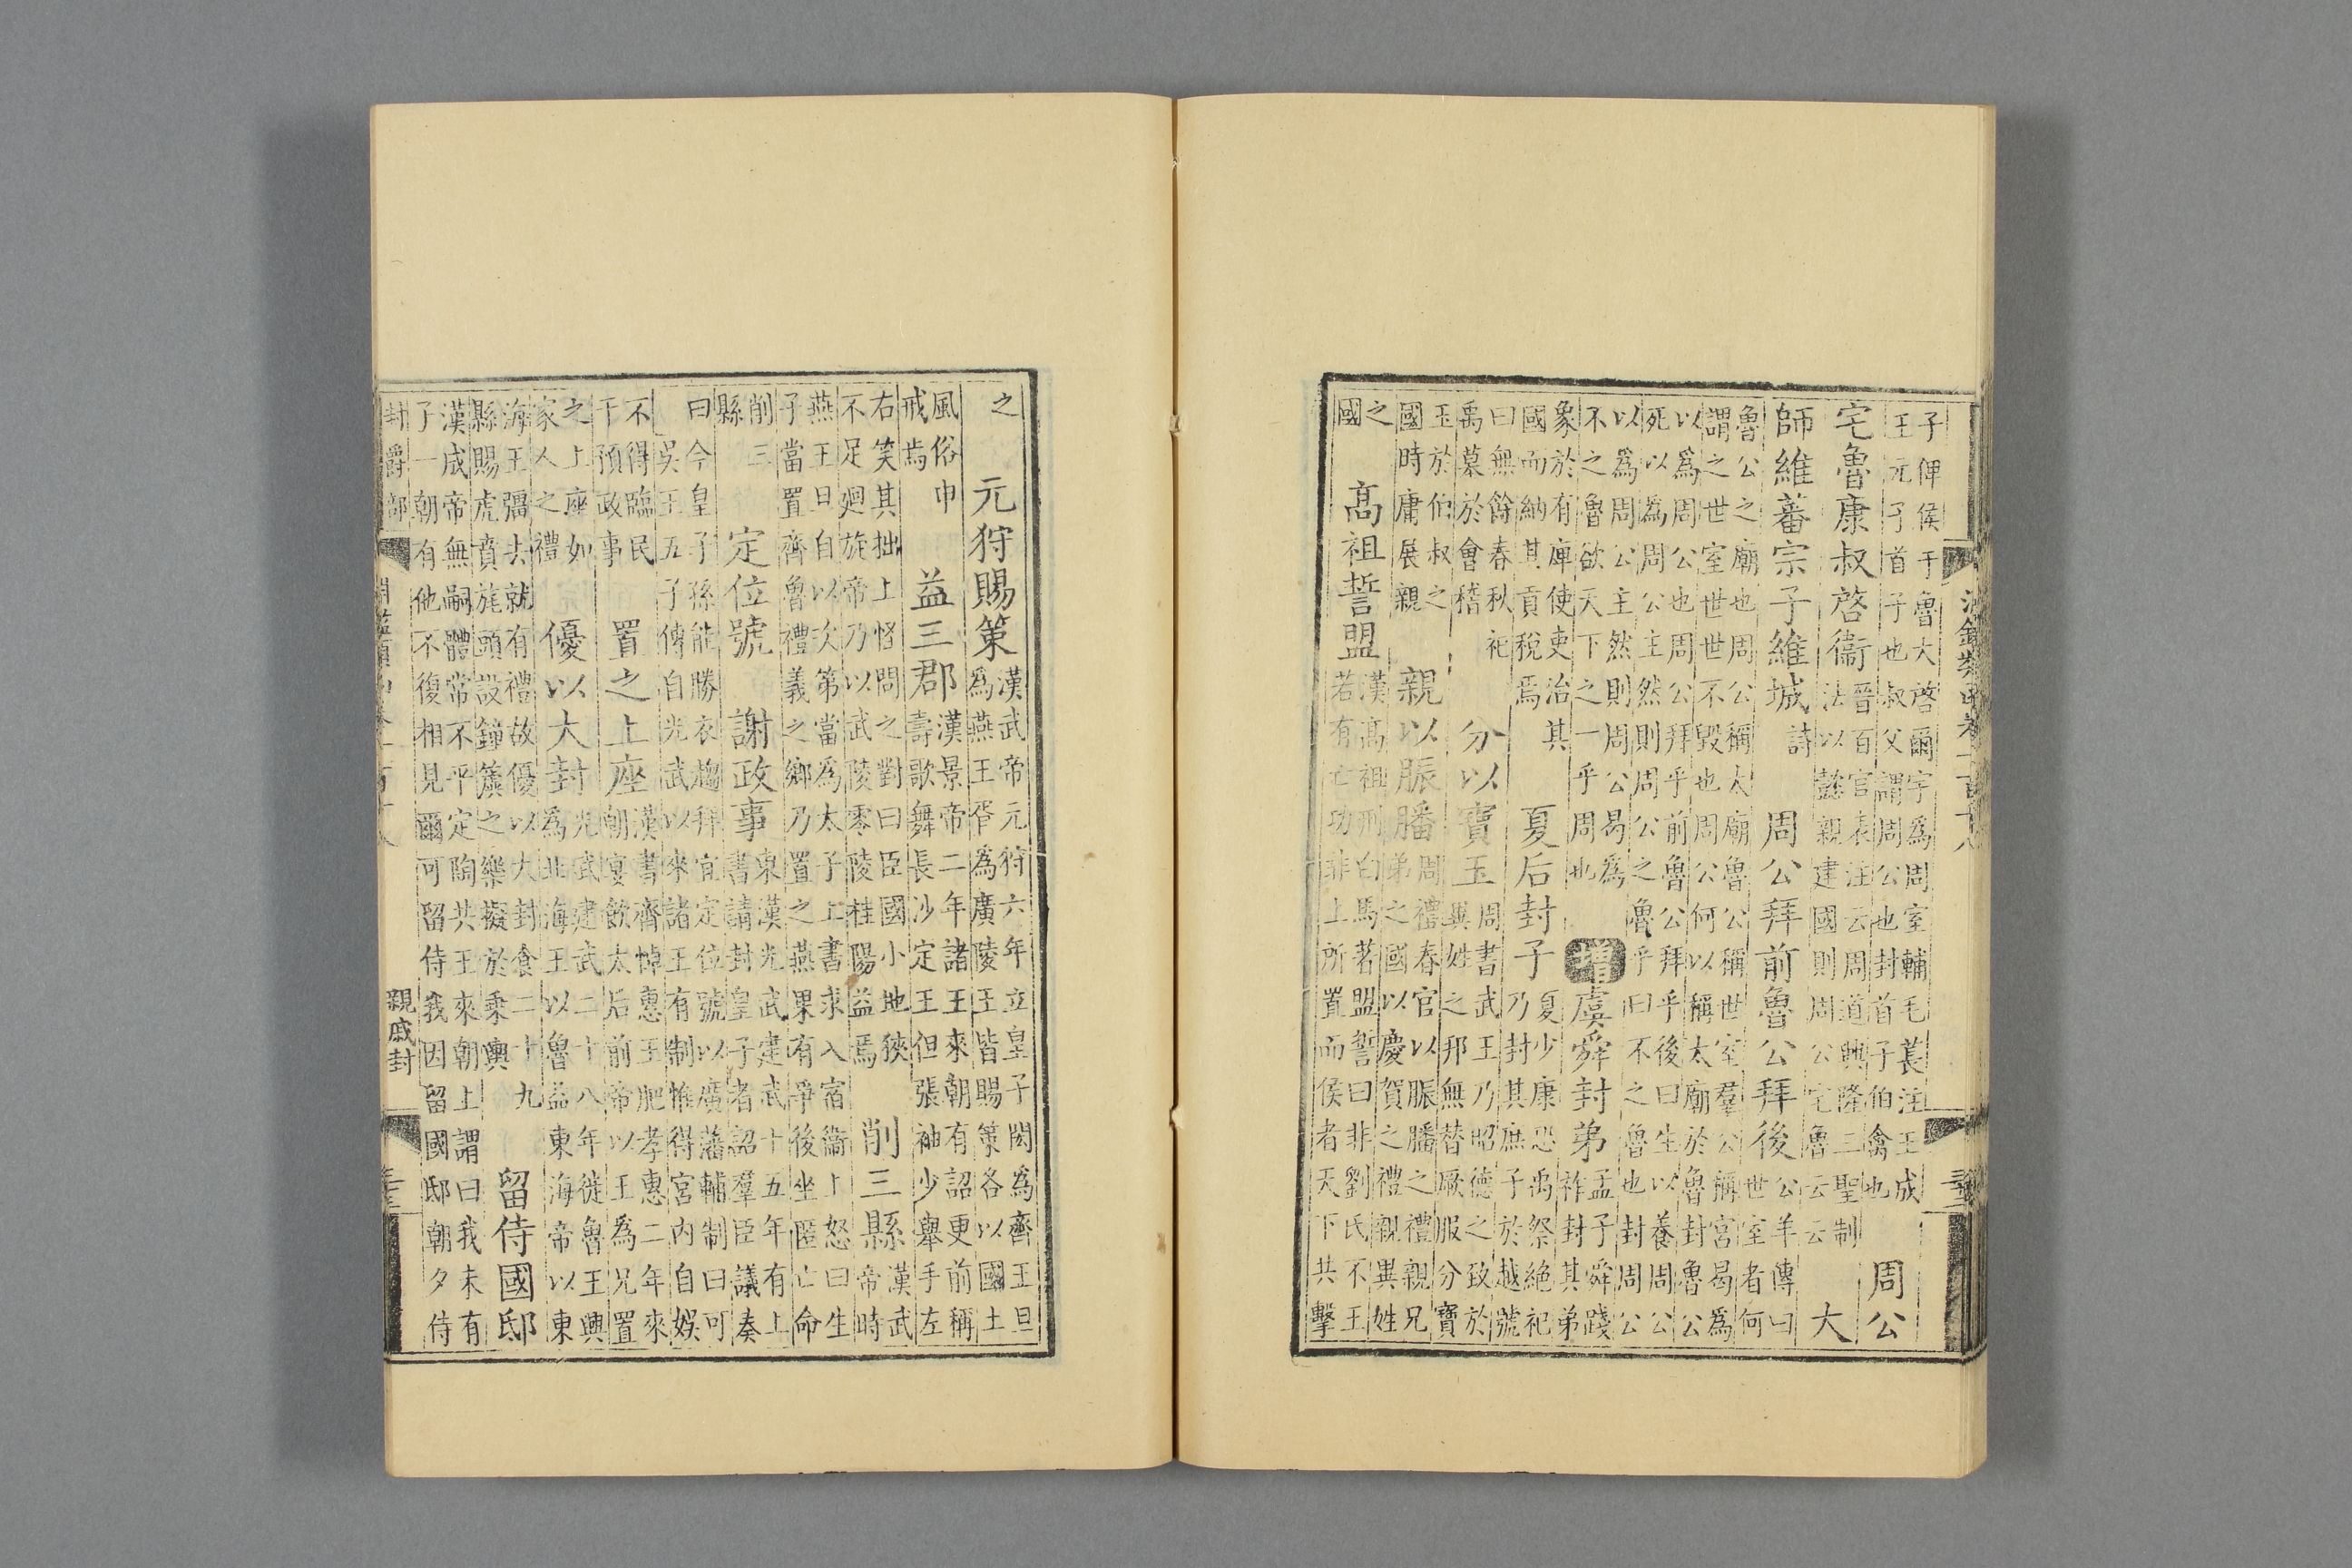 淵鑑類函卷一百十八
子俾侯于魯大啓爾宇為周室輔毛萇注王成
王元子首子也叔父謂周公也封首子伯禽也
周公
宅魯康叔啓衞
晉百官表注云周道興隆三聖制
法以懿親建國則周公宅魯云云
大
師維蕃宗子維城
詩
周公拜前魯公拜後
公羊傳曰
世室者何
魯公之廟也周公稱太廟魯公稱世室羣公稱宮曷為
謂之世室世世不毀也周公何以稱太廟於魯封魯公
以為周公也周公拜乎前魯公拜乎後曰生以養周公
死以為周公主然則周公之魯乎曰不之魯也封周公
以為周公主然則周公曷為
不之魯欲天下之一乎周也
增虞舜封弟
孟子舜踐
祚封其弟
象於有庳使吏治其
國而納其貢稅焉
夏后封子
夏少康恐禹祭絕祀
乃封其庶子於越號
曰無餘春秋祀
禹墓於會稽
分以寶玉
周書武王乃昭德之致於
異姓之邦無替厥服分寶
玉於伯叔之
國時庸展親
親以脤膰
周禮春官以脤膰之禮親兄
弟之國以慶賀之禮親異姓
之
國
高祖誓盟
漢高祖刑白馬著盟誓曰非劉氏不王
若有亡功非上所置而侯者天下共擊
之
元狩賜策
漢武帝元狩六年立皇子閎為齊王旦
為燕王胥為廣陵王皆賜策各以國土
風俗申
戒焉
益三郡
漢景帝二年諸王來朝有詔更前稱
壽歌舞長沙定王但張袖少舉手左
右笑其拙上恠問之對曰臣國小地狹
不足廻旋帝乃以武陵零陵桂陽益焉
削三縣
漢武
帝時
燕王旦自以次第當為太子上書求入宿衞上怒曰生
子當置齊魯禮義之鄉乃置之燕果有爭後坐匿亡命
削三
縣
定位號
謝政事
東漢光武建武十五年有上
書請封皇子者詔羣臣議奏
曰今皇子孫能勝衣趨拜宜定位號以廣藩輔制曰可
吳王五子傳自光武以來諸王有制惟得宮內自娛
不得臨民
干預政事
置之上座
漢書齊悼惠王肥孝惠二年來
朝宴飲太后前帝以王為兄置
之上座如
家人之禮
優以大封
光武建武二十八年徙魯王興
為北海王以魯益東海帝以東
海王彊去就有禮故優以大封食二十九
縣賜虎賁旄頭設鐘簴之樂擬於乘輿
留侍國邸
漢成帝無嗣體常不平定陶共王來朝上謂曰我未有
子一朝有他不復相見爾可留侍我因留國邸朝夕侍
封爵部
親戚封